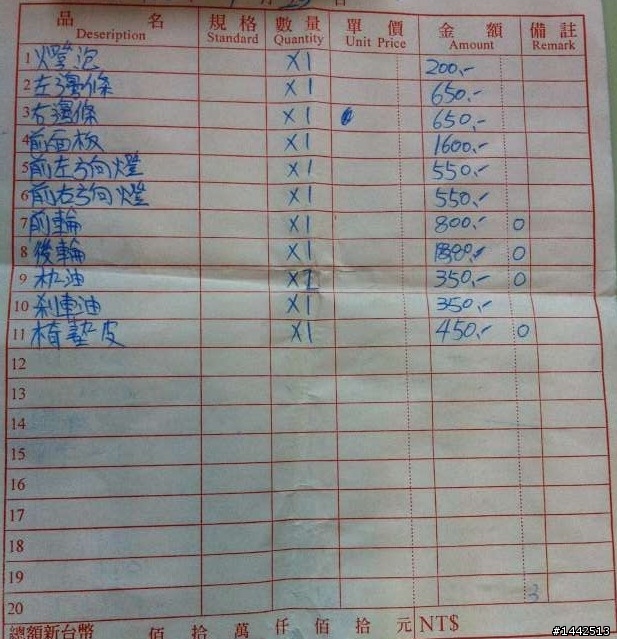 品 名 規 格 數 量 單 價 金 額 備 註
Deseription Standard Quantity Unit Price Amount Remark
1 燈泡 X1 200.-
2 左邊條 X1 650.-
3 右邊條 X1 650.-
4 前面板 X1 1600.-
5 前左方向燈 X1 550.-
6 前右方向燈 X1 550.-
7 前輪 X1 800.- O
8 後輪 X1 O
9 机油 X1 350.- O
10 刹車油 X1 350.-
11 椅墊皮 X1 450.- O
12
13
14
15
16
17
18
19
20
總額新台幣 佰 拾 萬 仟 佰 拾 元 NT$
#1442513